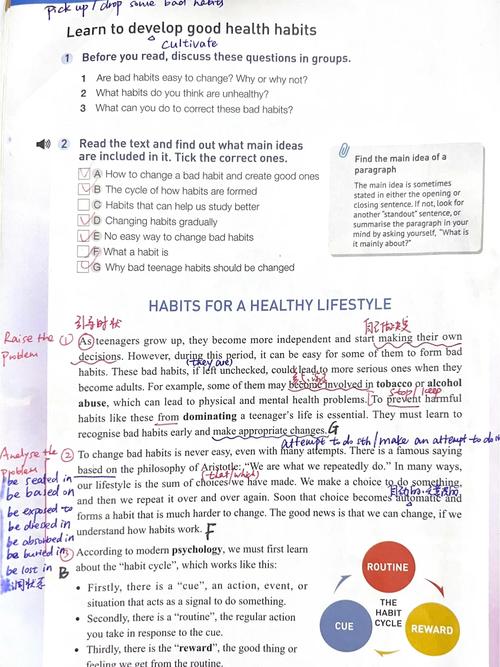 pick up / drop some bad habits
Learn to develop good health habits
cultivate
1 Before you read, discuss these questions in groups.
1 Are bad habits easy to change? Why or why not?
2 What habits do you think are unhealthy?
3 What can you do to correct these bad habits?
2 Read the text and find out what main ideas
are included in it. Tick the correct ones.
A How to change a bad habit and create good ones
B The cycle of how habits are formed
C Habits that can help us study better
D Changing habits gradually
E No easy way to change bad habits
F What a habit is
G Why bad teenage habits should be changed
Find the main idea of a
paragraph
The main idea is sometimes
stated in either the opening or
closing sentence. If not, look for
another "standout" sentence, or
summarise the paragraph in your
mind by asking yourself, "What is
it mainly about?"
HABITS FOR A HEALTHY LIFESTYLE
引导时状
Raise the
Problem
1 As teenagers grow up, they become more independent and start making their own
decisions. However, during this period, it can be easy for some of them to form bad
(they are)
habits. These bad habits, if left unchecked, could lead to more serious ones when they
become adults. For example, some of them may become involved in tobacco or alcohol
stop / keep
abuse, which can lead to physical and mental health problems. To prevent harmful
habits like these from dominating a teenager's life is essential. They must learn to
recognise bad habits early and make appropriate changes. G
attempt to do sth / make an attempt to do sth
Analyse the
Problem
2 To change bad habits is never easy, even with many attempts. There is a famous saying
based on the philosophy of Aristotle: "We are what we repeatedly do." In many ways,
(that/which)
our lifestyle is the sum of choices we have made. We make a choice to do something,
and then we repeat it over and over again. Soon that choice becomes automatic and
forms a habit that is much harder to change. The good news is that we can change, if we
understand how habits work. F
be seated in
be based on
be exposed to
be dressed in
be absorbed in
be buried in
be lost in
3 According to modern psychology, we must first learn
about the "habit cycle", which works like this:
B
• Firstly, there is a "cue", an action, event, or
situation that acts as a signal to do something.
• Secondly, there is a "routine", the regular action
you take in response to the cue.
• Thirdly, there is the "reward", the good thing or
feeling we get from the routine.
ROUTINE
THE
HABIT
CYCLE
CUE
REWARD